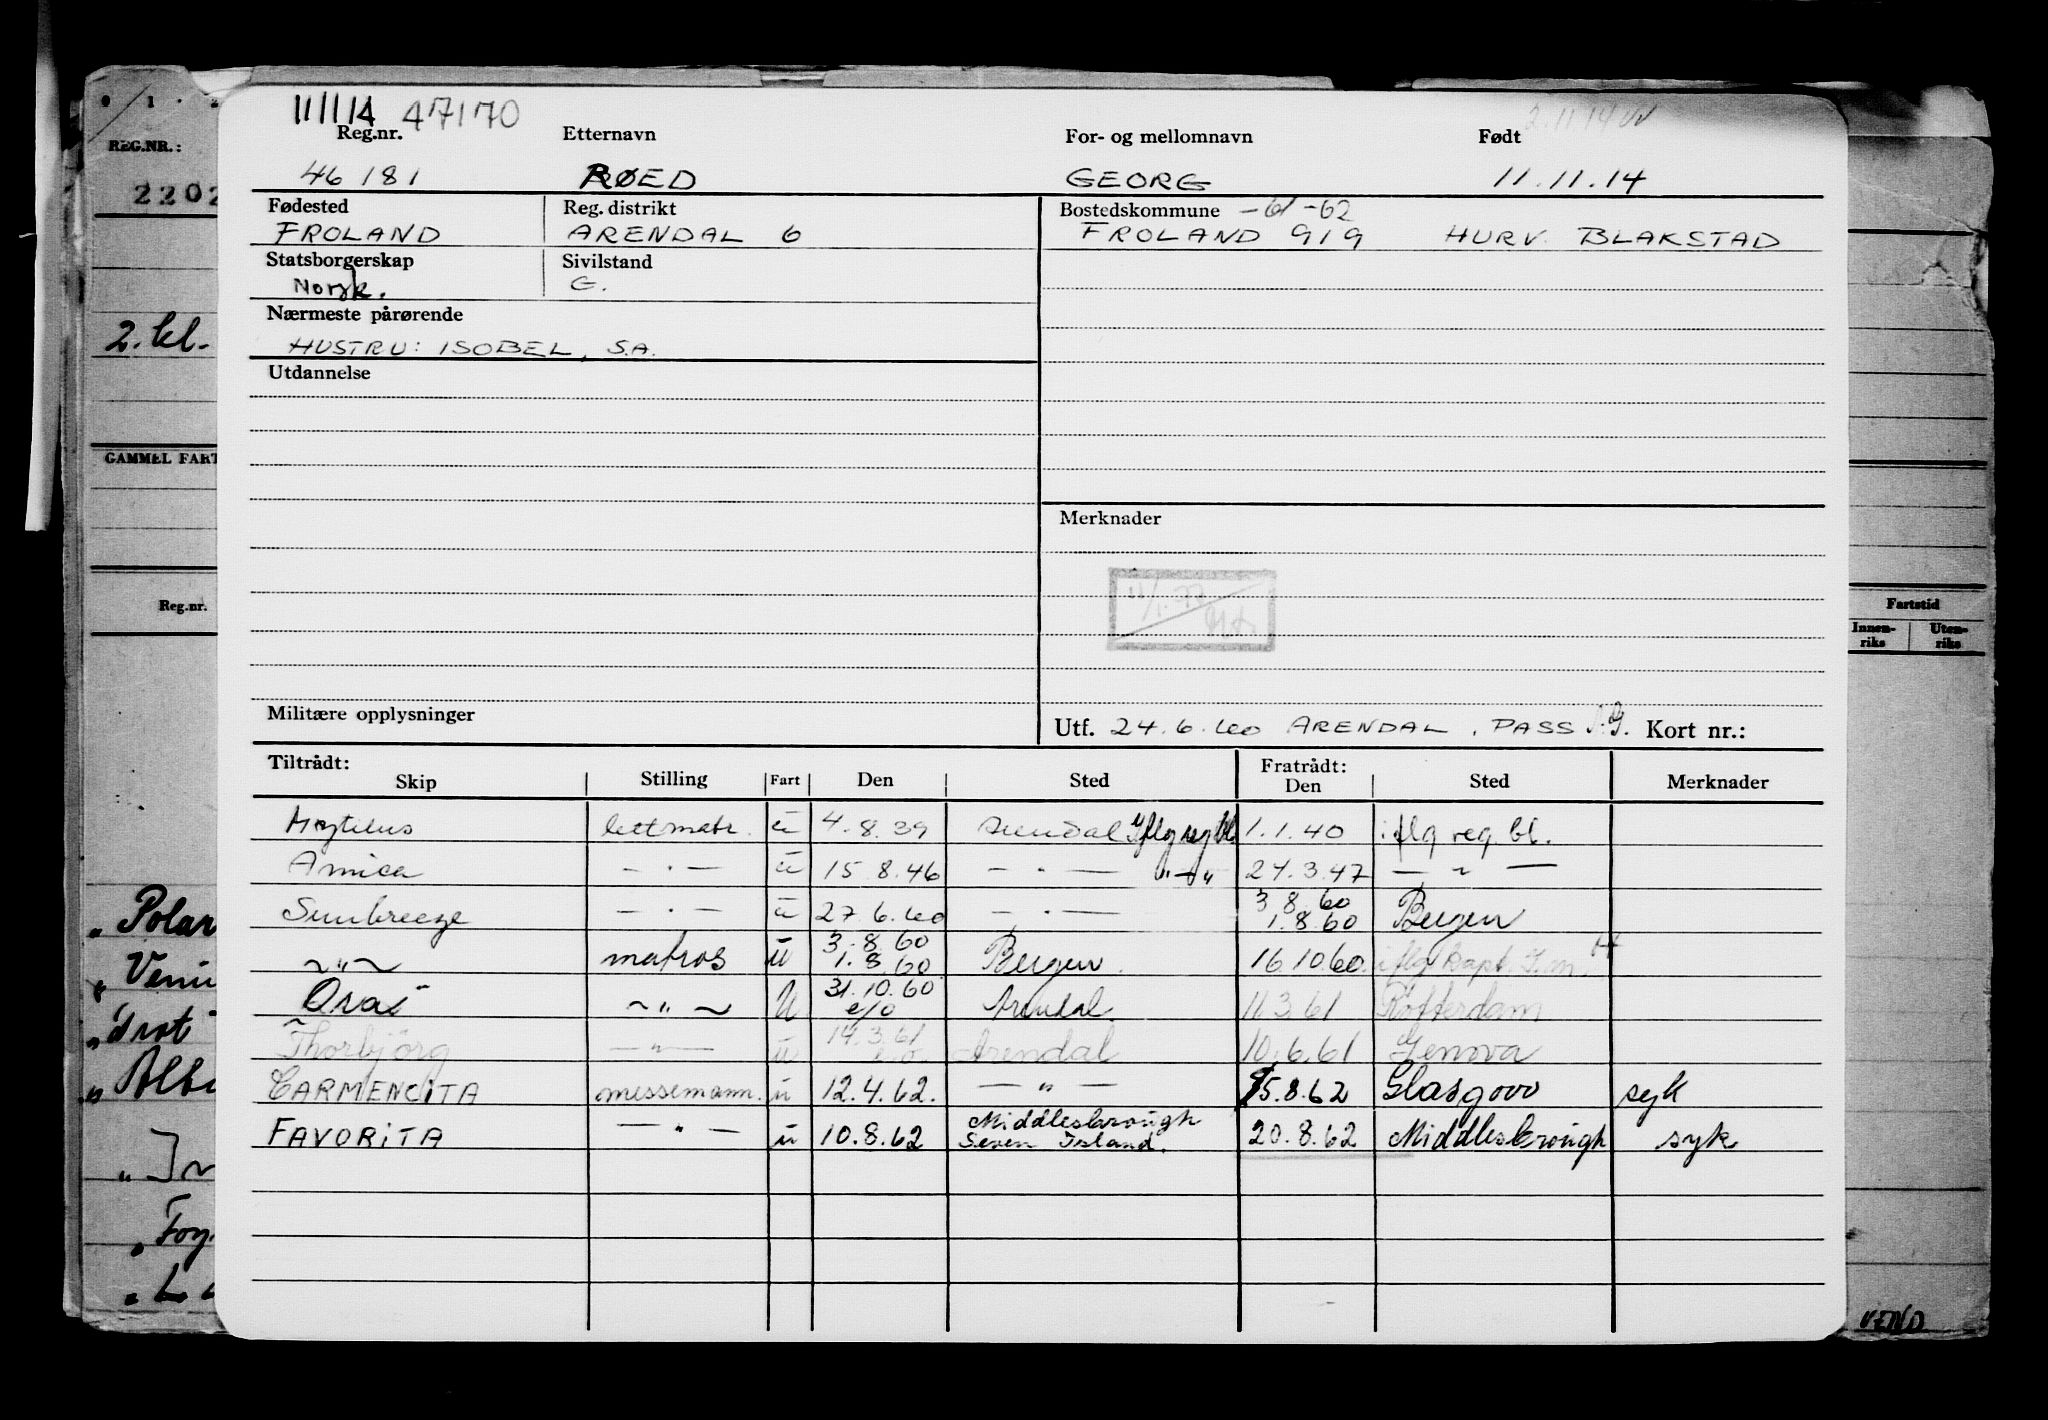 11/1/14 47170 2.11.14
Reg.nr. Etternavn For- og mellomnavn Født
46181 RØED GEORG 11.11.14
REG.NR.:
2202
Fødested Reg. distrikt Bostedskommune -61-62
FROLAND ARENDAL 6 FROLAND 919 HURV. BLAKSTAD
Statsborgerskap Sivilstand
Norsk. G.
Nærmeste pårørende
HUSTRU: ISOBEL, S.A.
2. kl.
Utdannelse
GAMMEL FART
Merknader
11/1.77
Reg.nr. Fartstid
Innen-riks Uten-riks
Militære opplysninger
Utf. 24.6.60 ARENDAL, PASS Kort nr.:
Tiltrådt: Fratrådt:
Skip Stilling Fart Den Sted Den Sted Merknader
lettmatr. u 4.8.39 Arendal Iflg reg bl. 1.1.40 iflg reg. bl.
Amica — " — u 15.8.46 — " — " — " 24.3.47 — " —
Sunbreeze — " — u 27.6.60 — " — 3.8.60 1.8.60 Bergen
— " — matros u 3.8.60 1.8.60 Bergen. 16.10.60 iflg kapt.
— " — u 31.10.60 e/o Arendal 11.3.61 Rotterdam
Thorbjörg — " — u 14.3.61 e/o Arendal 10.6.61 Genova
CARMENCITA messemann. u 12.4.62. — " — 5.8.62 Glasgow syk
FAVORITA — " — u 10.8.62 Middlesbrough Seven Island. 20.8.62 Middlesbrough syk
" Polar
" Venu
" Albi
VEND